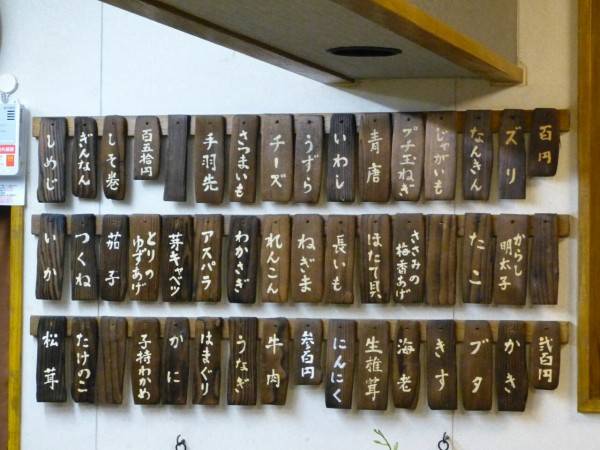 百円
ズリ
なんきん
じゃがいも
プチ玉ねぎ
青唐
いわし
うずら
チーズ
さつまいも
手羽先
百五拾円
しそ巻
ぎんなん
しめじ
からし
明太子
たこ
ささみの
梅香あげ
ほたて貝
長いも
ねぎま
れんこん
わかさぎ
アスパラ
芽キャベツ
とりの
ゆずあげ
茄子
つくね
いか
弐百円
かき
ブタ
きす
海老
生椎茸
にんにく
参百円
牛肉
うなぎ
はまぐり
かに
子持わかめ
たけのこ
松茸